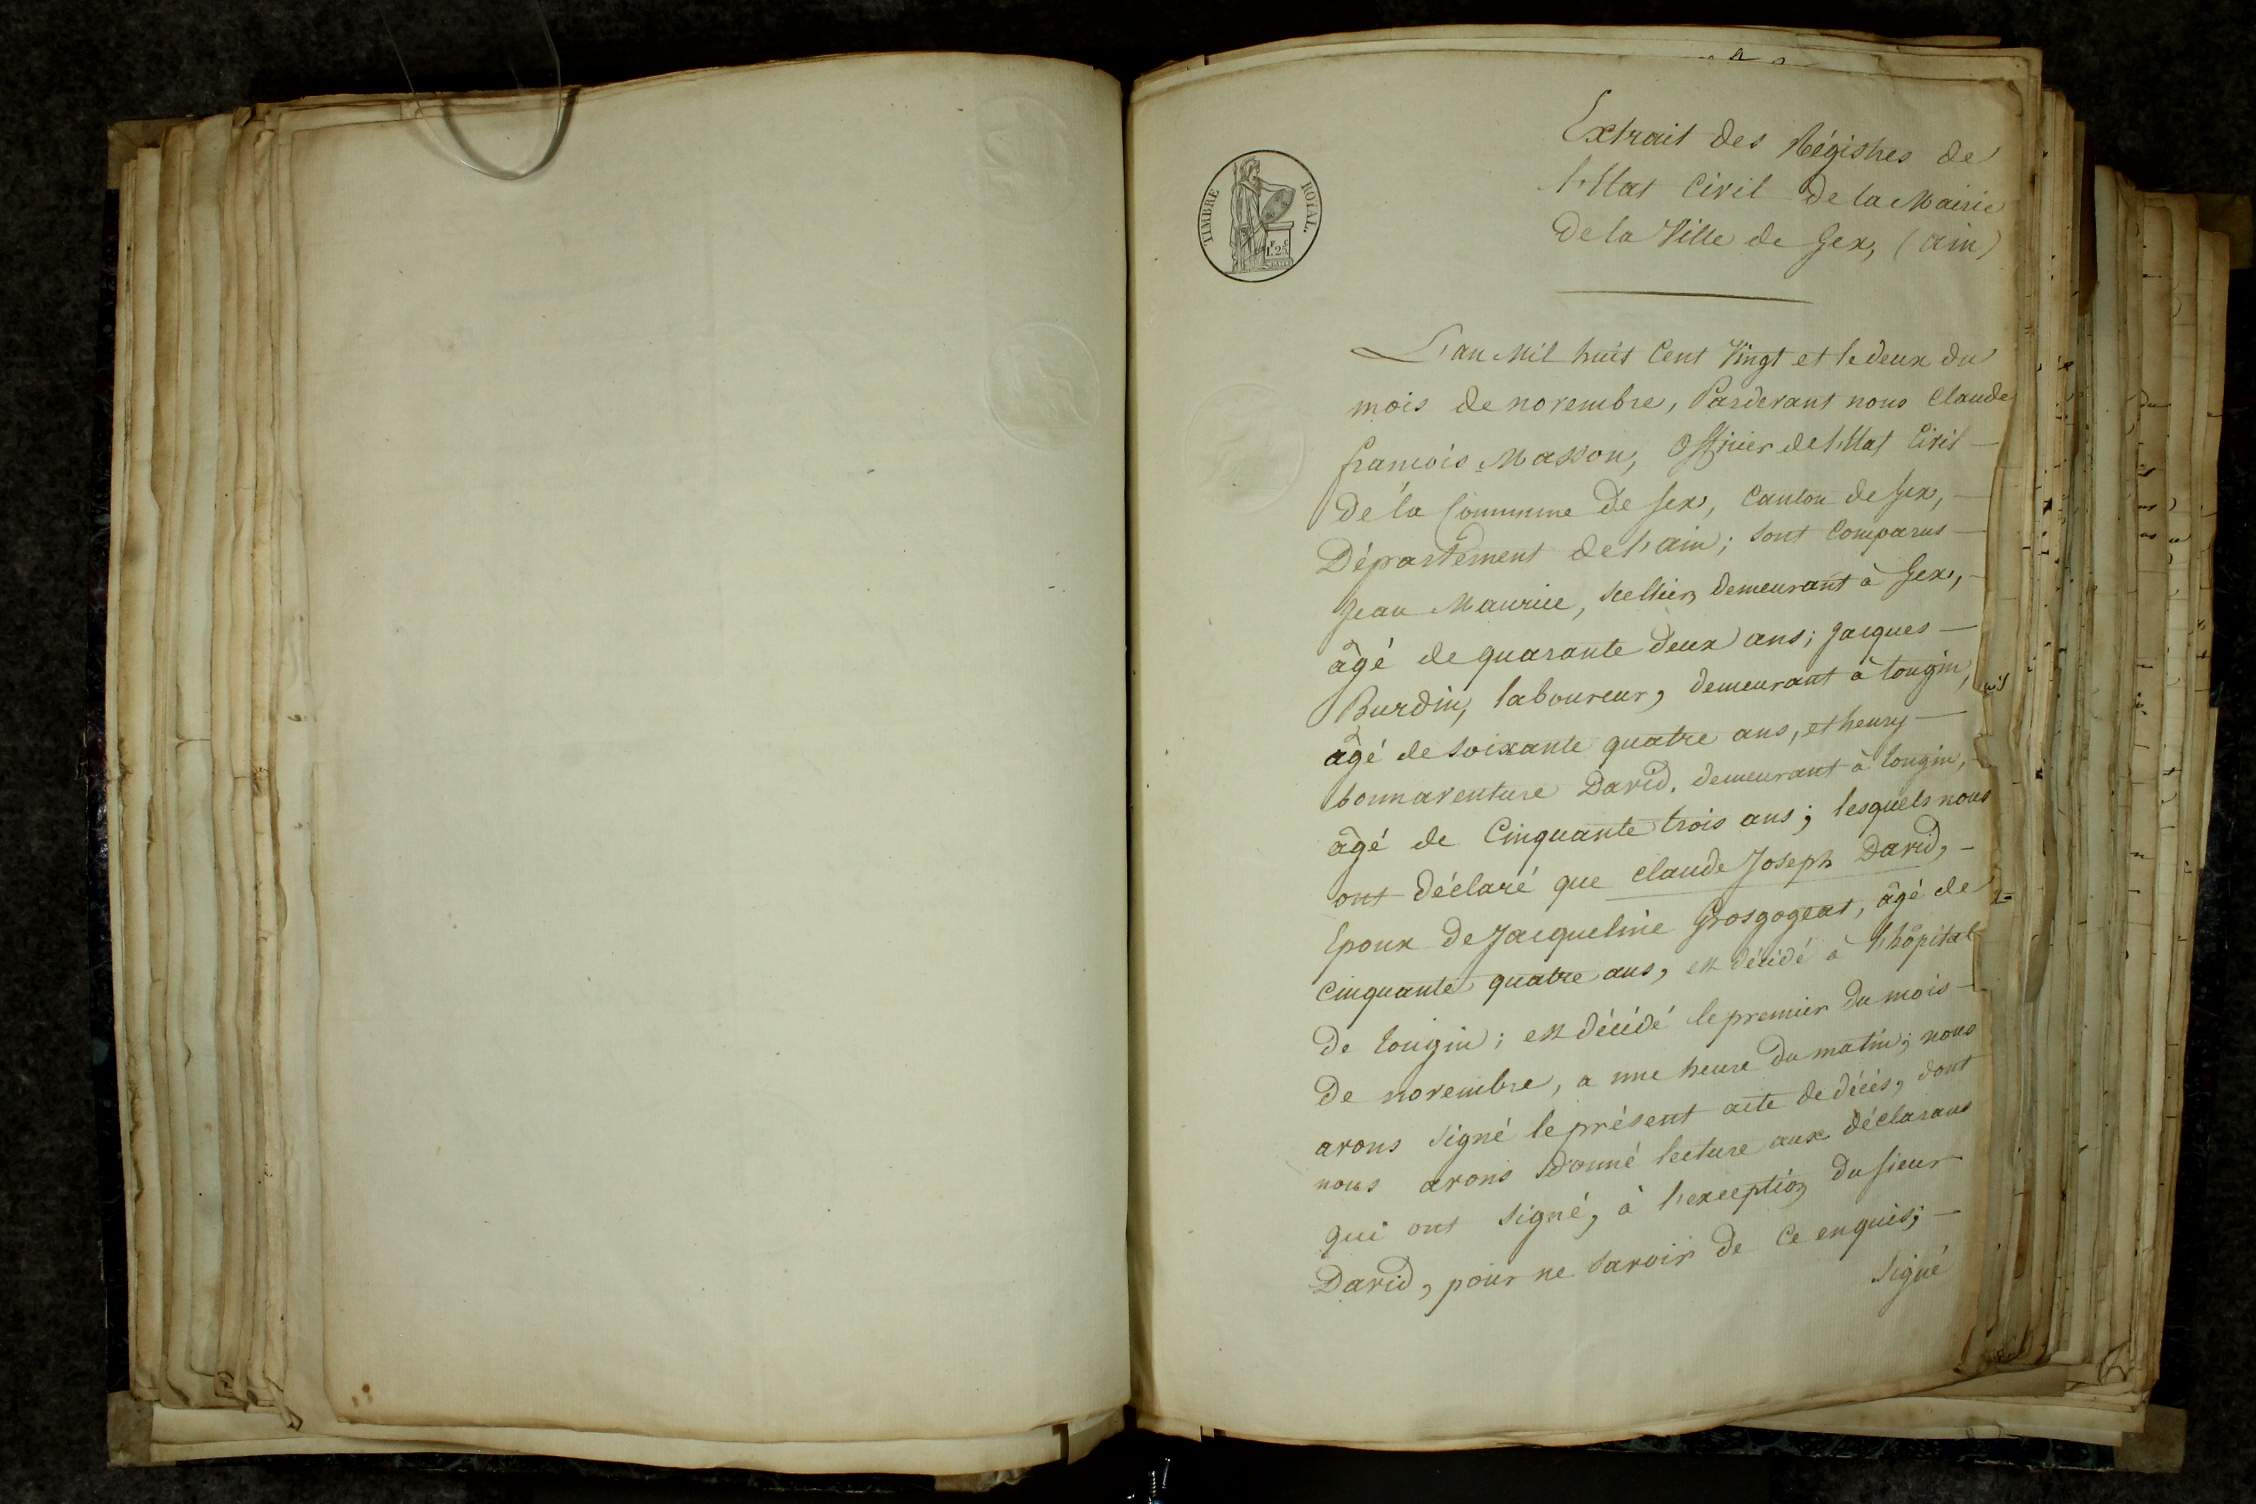 Extrait des Régistres de
l'Etat Civil de la Mairie
de la Ville de Gex, (ain)
TIMBRE ROYAL.
1F.25C
L'an Mil huit Cent Vingt et le deux du
mois de novembre, Pardevant nous Claude
françois Masson, Officier de l'Etat Civil
de la Commune de Gex, Canton de Gex,
Département de l'ain; sont Comparus
Jean Maurice, Sellier, demeurant à Gex,
âgé de quarante deux ans; Jacques
Burdin, laboureur, demeurant à tougin,
âgé de soixante quatre ans, et henry
bonnaventure David, demeurant à tougin,
âgé de Cinquante trois ans; lesquels nous
ont déclaré que Claude Joseph David,
Epoux de Jacqueline Grosgogeat, âgé de
Cinquante quatre ans, est décédé à l'hôpital
de tougin; est décédé le premier du mois
de novembre, a une heure du matin; nous
avons signé le présent acte de décès, dont
nous avons donné lecture aux déclarans
qui ont signé, à l'exception du sieur
David, pour ne savoir de ce enquis;
signé